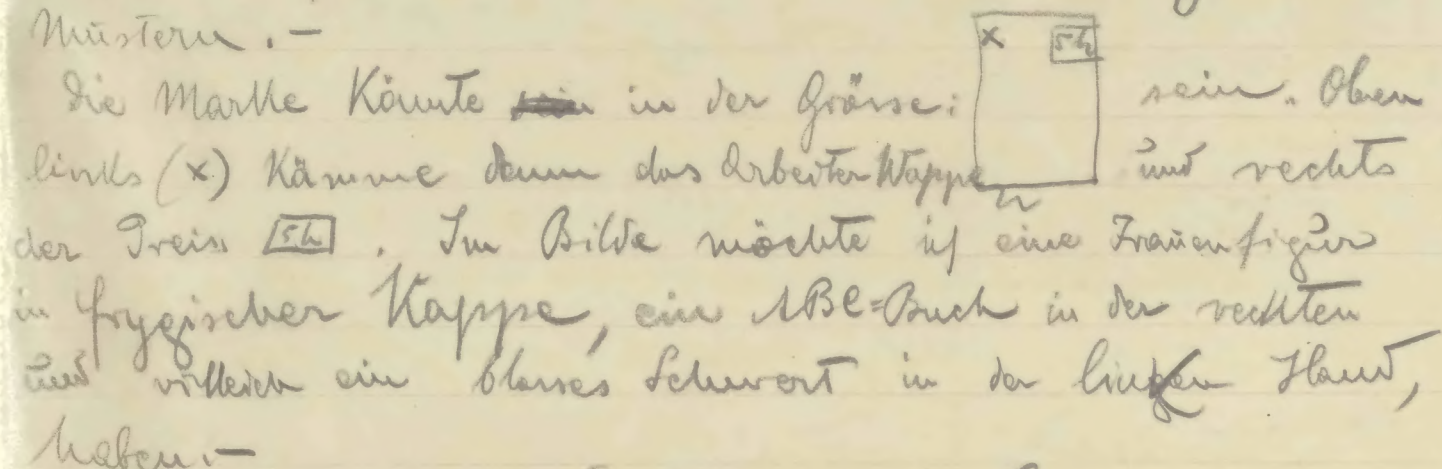 Mustern.-
Die Marke Könnte in der Grösse: x 5h sein. Oben
links (x) Kämme dann das Arbeiter Wappen und rechts
der Preis 5h. Im Bilde möchte ich eine Frauenfigur
in frygischer Kappe, ein ABC=Buch in der rechten
und villeich ein blosses Schwert in der linken Hand,
haben.-